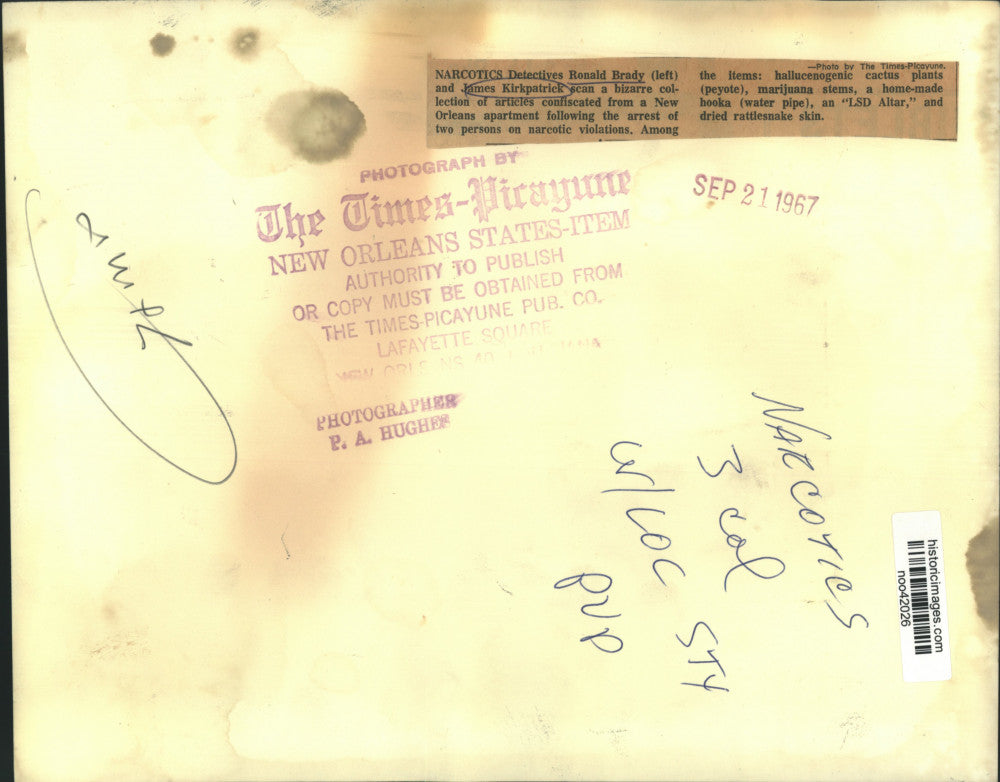 NARCOTICS Detectives Ronald Brady (left)
and James Kirkpatrick scan a bizarre col-
lection of articles confiscated from a New
Orleans apartment following the arrest of
two persons on narcotic violations. Among
—Photo by The Times-Picayune.
the items: hallucenogenic cactus plants
(peyote), marijuana stems, a home-made
hooka (water pipe), an “LSD Altar,” and
dried rattlesnake skin.
PHOTOGRAPH BY
The Times-Picayune
NEW ORLEANS STATES-ITEM
AUTHORITY TO PUBLISH
OR COPY MUST BE OBTAINED FROM
THE TIMES-PICAYUNE PUB. CO.
LAFAYETTE SQUARE
SEP 21 1967
PHOTOGRAPHER
P. A. HUGHES
NARCOTICS
3 col
W/LOC STY
historicimages.com
noo42026